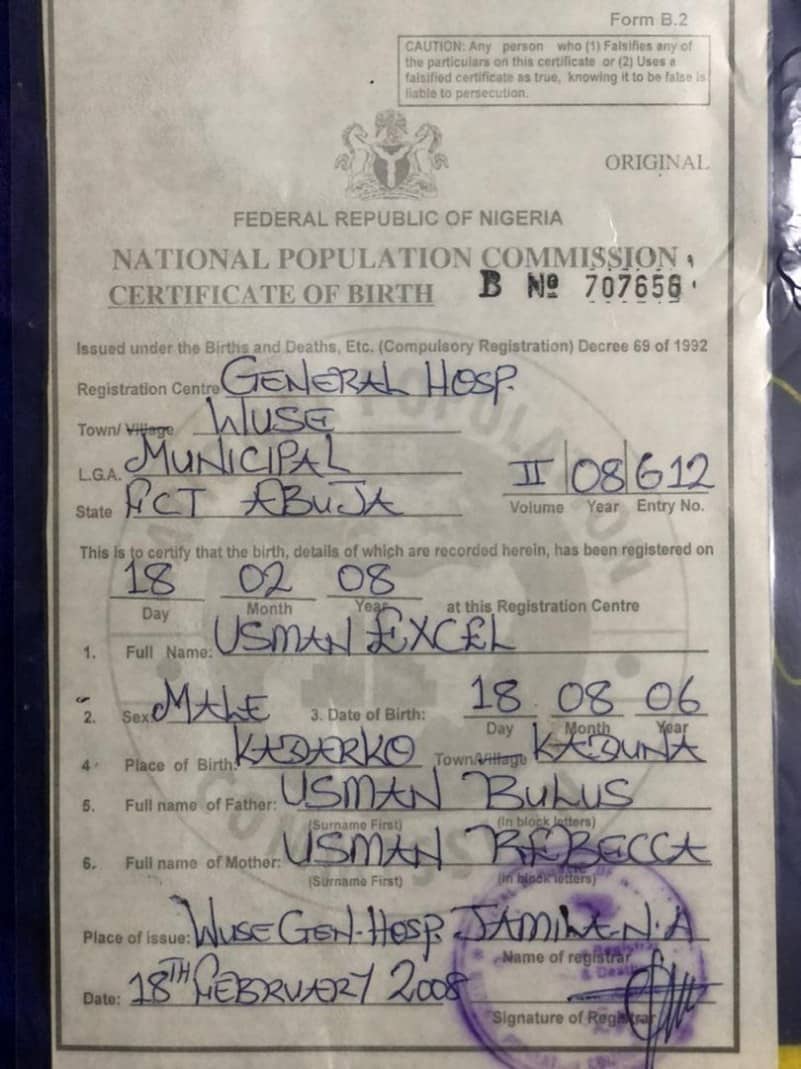 Form B.2
CAUTION: Any person who (1) Falsifies any of
the particulars on this certificate or (2) Uses a
falsified certificate as true, knowing it to be false is
liable to persecution.
ORIGINAL
FEDERAL REPUBLIC OF NIGERIA
NATIONAL POPULATION COMMISSION
CERTIFICATE OF BIRTH B Nº 707656
Issued under the Births and Deaths, Etc. (Compulsory Registration) Decree 69 of 1992
Registration Centre GENERAL HOSP.
Town/ Village WUSE
L.G.A. MUNICIPAL
State FCT ABUJA
II 08 612
Volume Year Entry No.
This is to certify that the birth, details of which are recorded herein, has been registered on
18 02 08
Day Month Year at this Registration Centre
1. Full Name: USMAN EXCEL
2. Sex: MALE 3. Date of Birth: 18 08 06
Day Month Year
4 Place of Birth: KADARKO Town/Village KADUNA
5. Full name of Father: USMAN BULUS
(Surname First) (In block letters)
6. Full name of Mother: USMAN REBECCA
(Surname First) (In block letters)
Place of issue: WUSE GEN. HOSP. JAMILA N. A
Name of registrar
Date: 18TH FEBRUARY 2008
Signature of Registrar